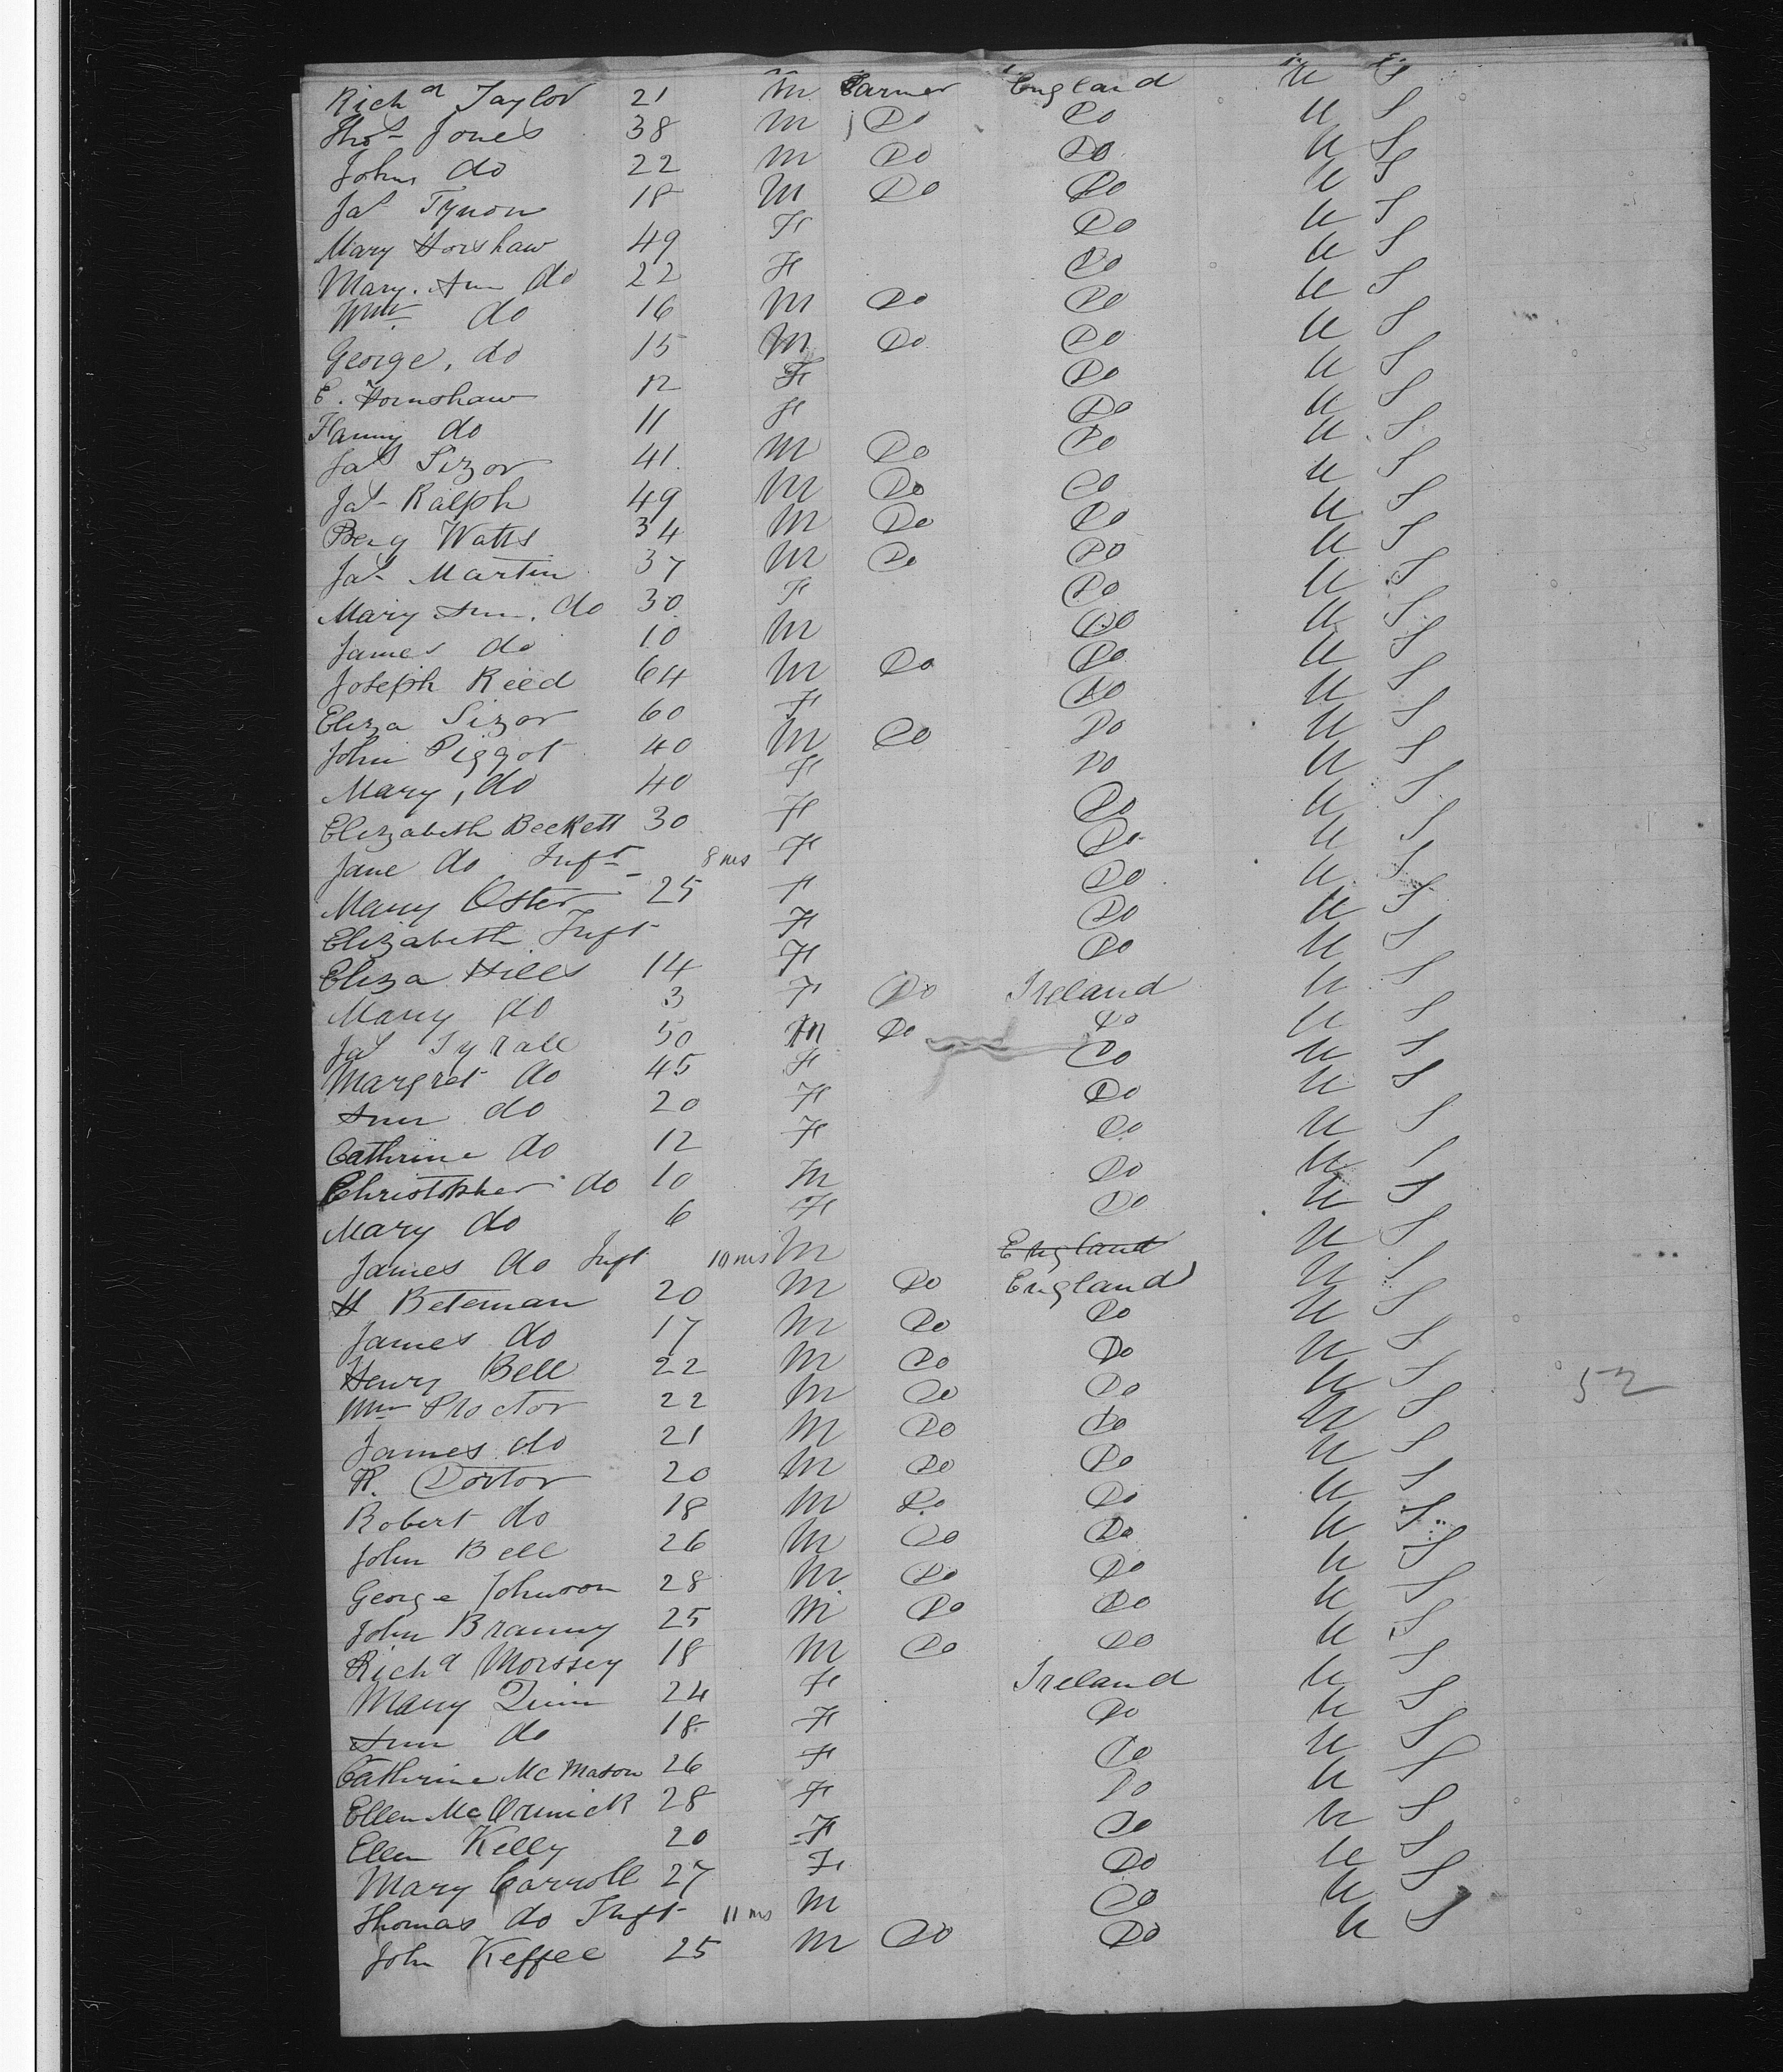 Richd Taylor 21 M Farmer England U S
Thos Jones 38 M Do Do U S
John do 22 M Do Do U S
Jas Tynon 18 M Do Do U S
Mary Horshaw 49 F Do U S
Mary Ann Do 22 F Do U S
Wm do 16 M Do Do U S
George, do 15 M Do Do U S
E. Hornshaw 12 F Do U S
Fanny do 11 F Do U S
Jas Sizor 41 M Do Do U S
Jas Ralph 49 M Do Do U S
Benj Watts 34 M Do Do U S
Jas Martin 37 M Do Do U S
Mary Ann. do 30 F Do U S
James do 10 M Do U S
Joseph Reed 64 M Do Do U S
Eliza Sizor 60 F Do U S
John Piggot 40 M Do Do U S
Mary, do 40 F Do U S
Elizabeth Beckett 30 F Do U S
Jane do Inft 8 ms F Do U S
Mary Oster 25 F Do U S
Elizabeth Inft F Do U S
Eliza Hills 14 F Do U S
Mary do 3 F Do Ireland U S
Jas Tyrall 50 M Do Do U S
Margret do 45 F Do U S
Ann do 20 F Do U S
Cathrine do 12 F Do U S
Christopher do 10 M Do U S
Mary do 6 F Do U S
James do Inft 10 ms M England U S
H Beteman 20 M Do England U S
James do 17 M Do Do U S
Henry Bell 22 M Do Do U S
Wm Proctor 22 M Do Do U S 52
James do 21 M Do Do U S
R. Doctor 20 M Do Do U S
Robert do 18 M Do Do U S
John Bell 26 M Do Do U S
George Johnson 28 M Do Do U S
John Branny 25 M Do Do U S
Richd Morssey 18 M Do Do U S
Mary Quin 24 F Ireland U S
Ann do 18 F Do U S
Cathrine McMason 26 F Do U S
Ellen McOrmick 28 F Do U S
Ellen Kelly 20 F Do U S
Mary Carroll 27 F Do U S
Thomas do Inft 11 ms M Do U S
John Keffee 25 M Do Do U S